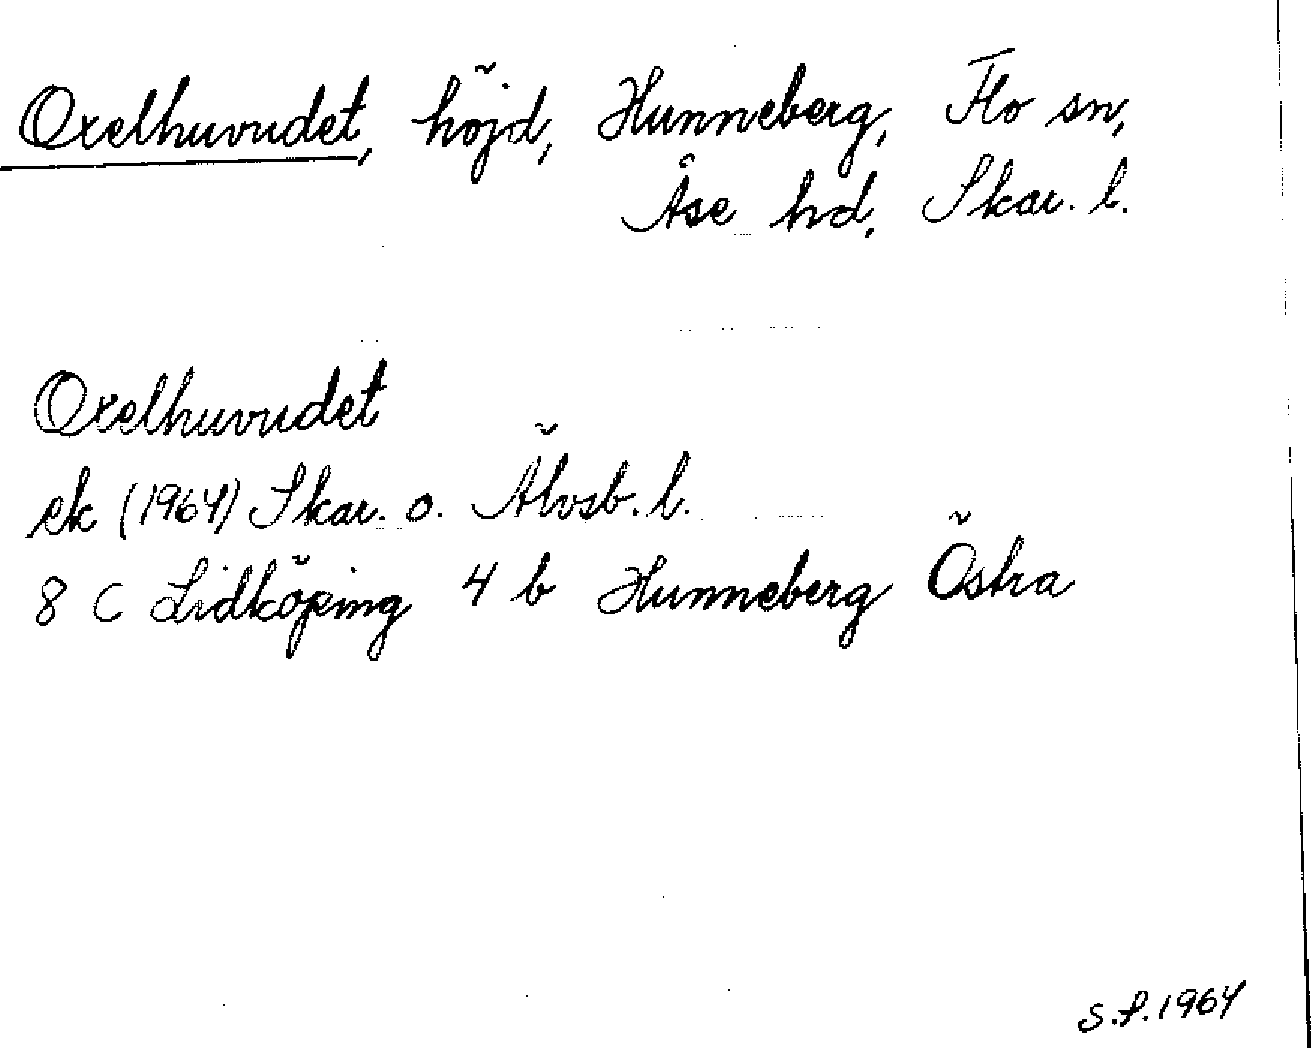 Oxelhuvudet, höjd, Hunneberg, Flo sn,
Åse hd, Skar. l.
Oxelhuvudet
ek (1964) Skar. o. Älvsb. l.
8 C Lidköping 4 b Hunneberg Östra
S.P. 1964